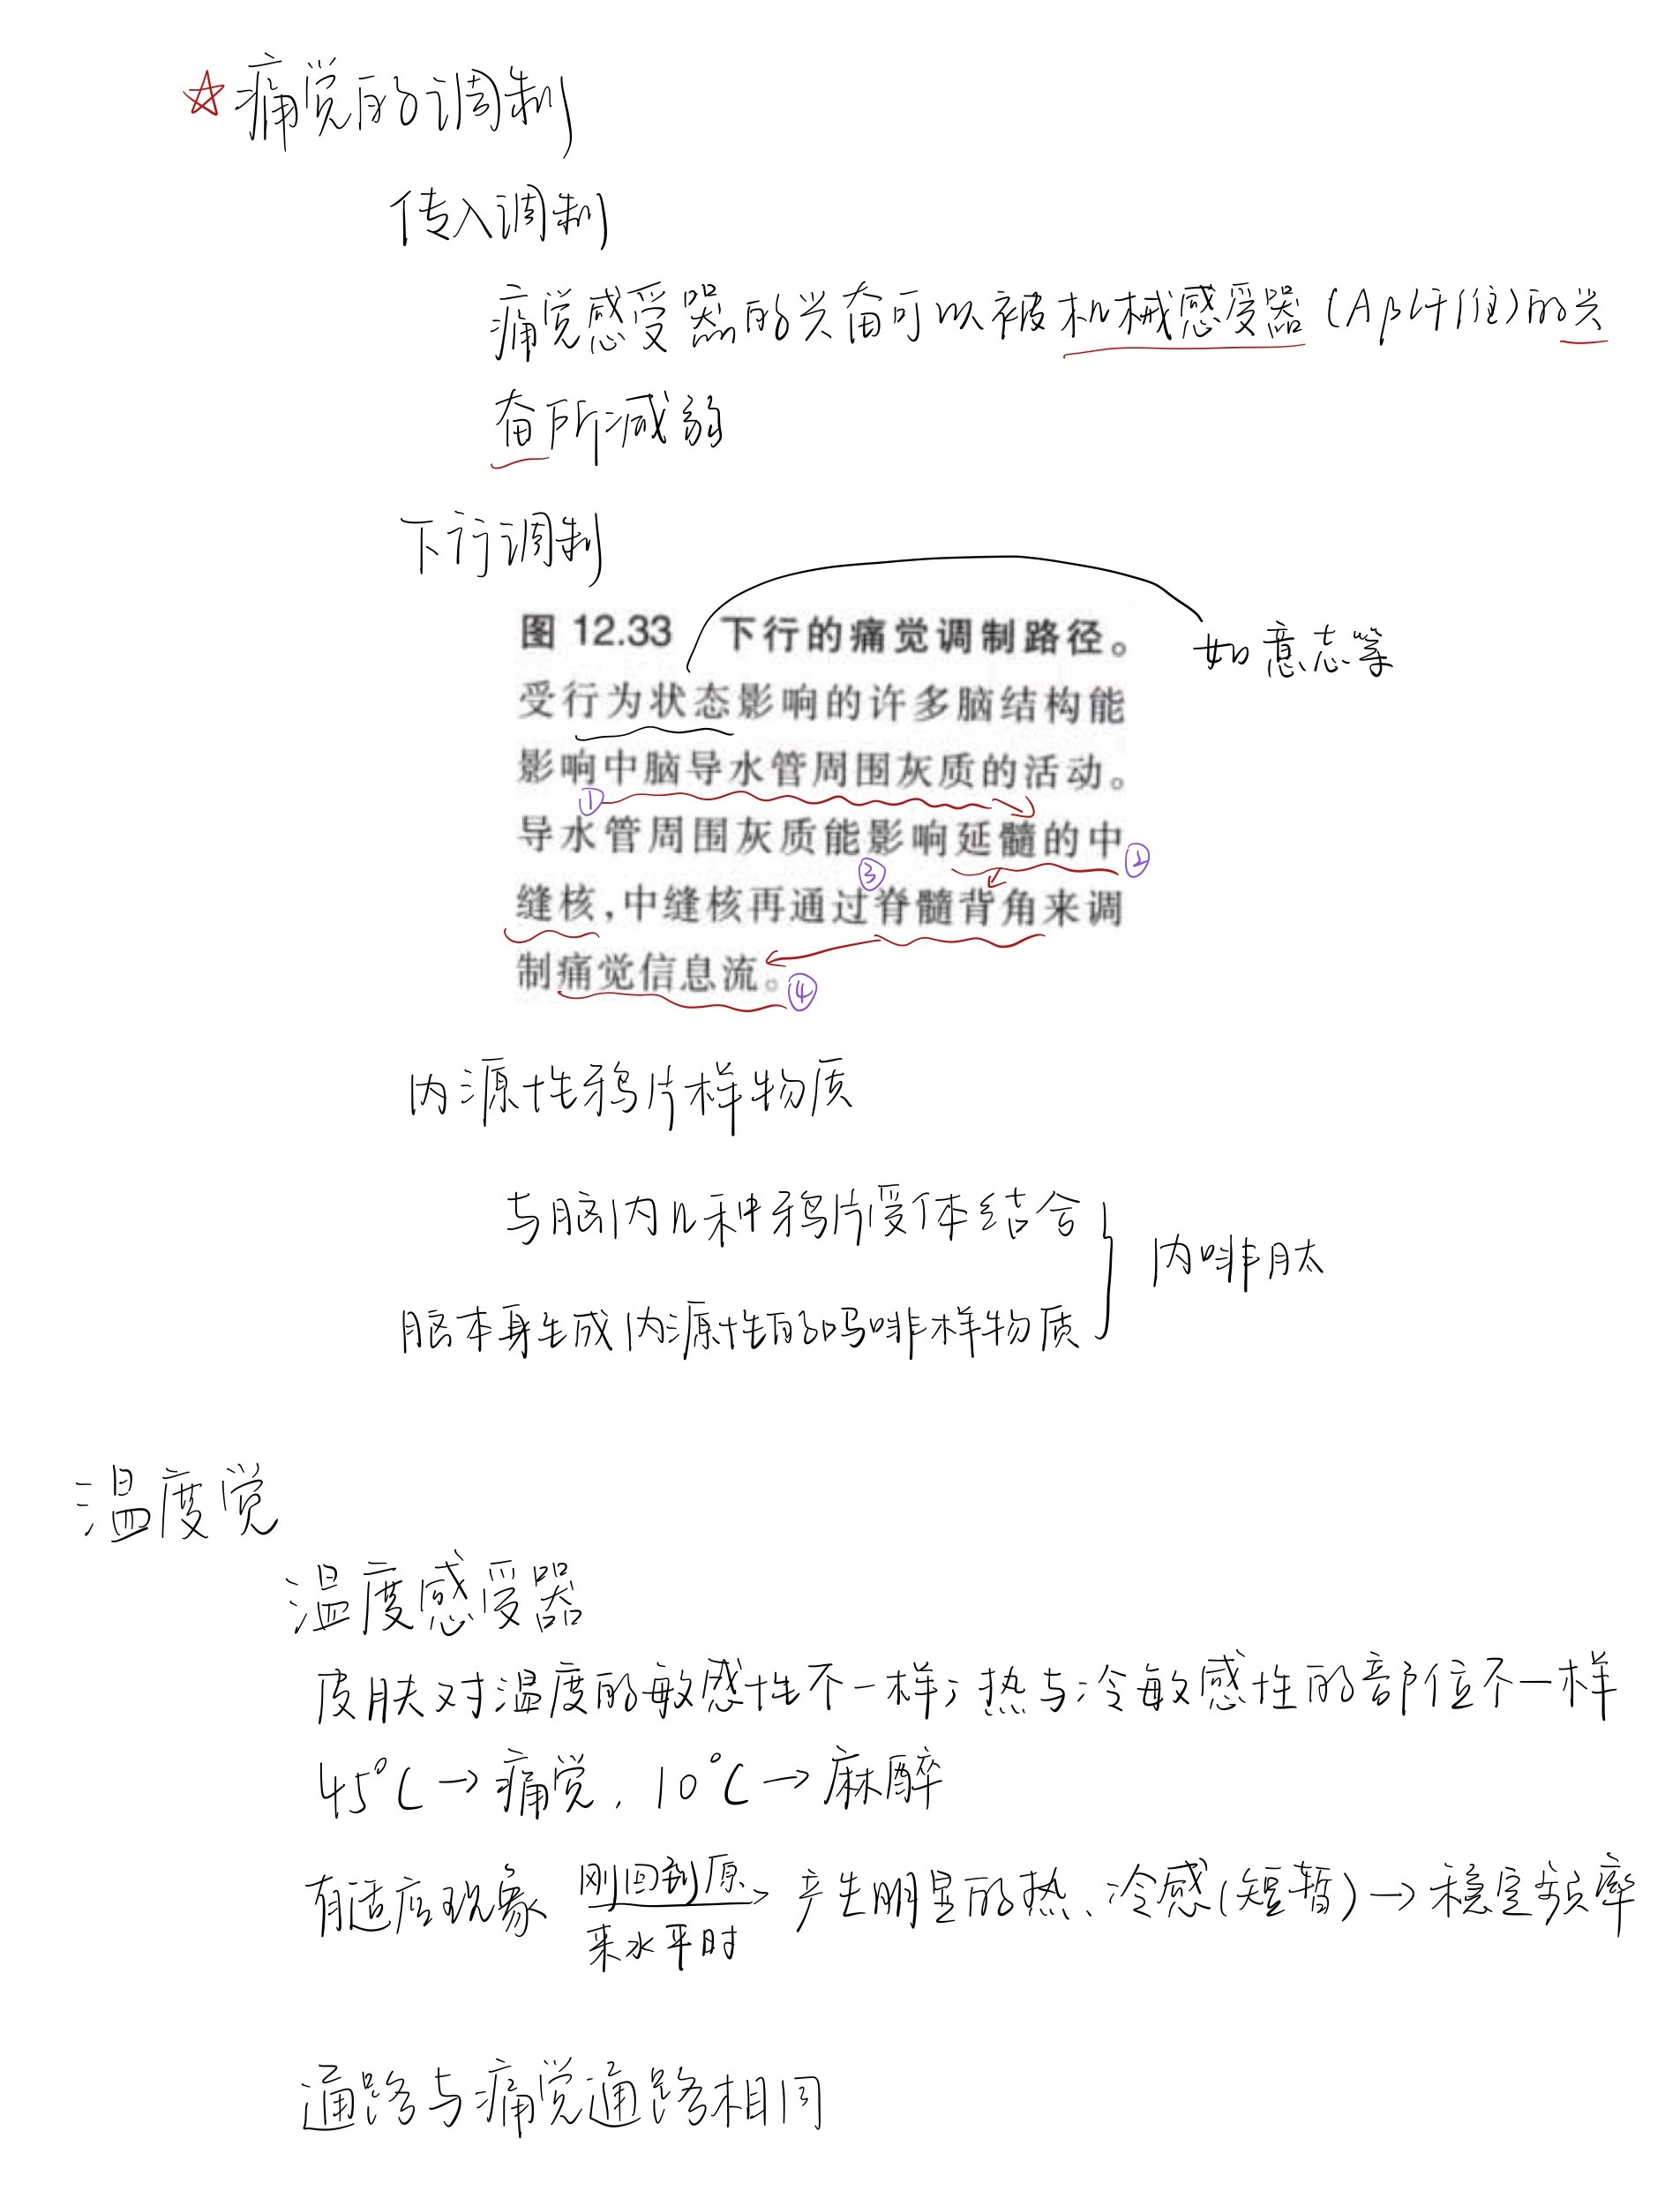 ☆痛觉的调制
传入调制
痛觉感受器的兴奋可以被机械感受器(Aβ纤维)的兴
奋所减弱
下行调制
图 12.33 下行的痛觉调制路径。
如意志等
受行为状态影响的许多脑结构能
影响中脑导水管周围灰质的活动。
①
导水管周围灰质能影响延髓的中
③ ②
缝核,中缝核再通过脊髓背角来调
制痛觉信息流。
④
内源性鸦片样物质
与脑内几种鸦片受体结合
内啡肽
脑本身生成内源性的吗啡样物质
温度觉
温度感受器
皮肤对温度的敏感性不一样;热与冷敏感性的部位不一样
45℃→痛觉,10℃→麻醉
有适应现象 刚回到原来水平时→ 产生明显的热、冷感(短暂)→稳定频率
通路与痛觉通路相同